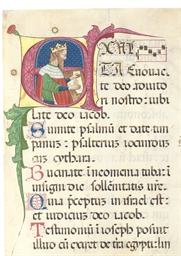 te deo adiuto
ri nostro: iubi
late deo iacob.
Sumite psalmū et date tim
panum: psalterium iocundum
cum cythara.
Bucinate in neomenia tuba:
in insigni die sollēnitatis vre.
Quia preceptū in israel est:
et iudicium deo iacob.
Testimoniū i ioseph posuit
illud cū exiret de tra egypti: lin